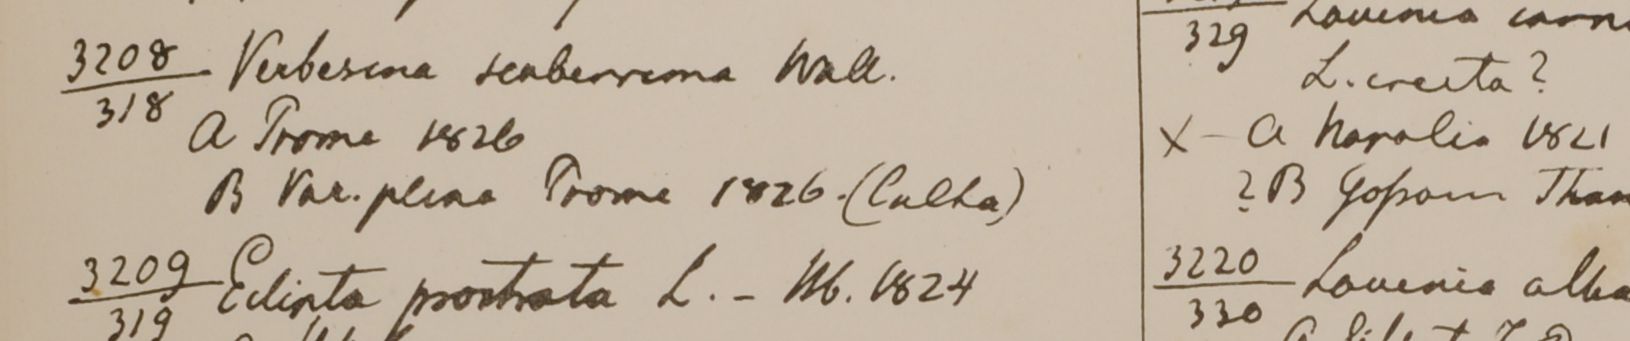 3208 Verbesina scaberrima Wall.
318
A Prome 1826
B Var. plena Prome 1826. (Culta)
3209 Eclipta prostrata L. - Hb. 1824
319
329 Lavenia carn
L. erecta?
X - A Napalia 1821
? B Gossain Than
3220 Lavenia alba
330